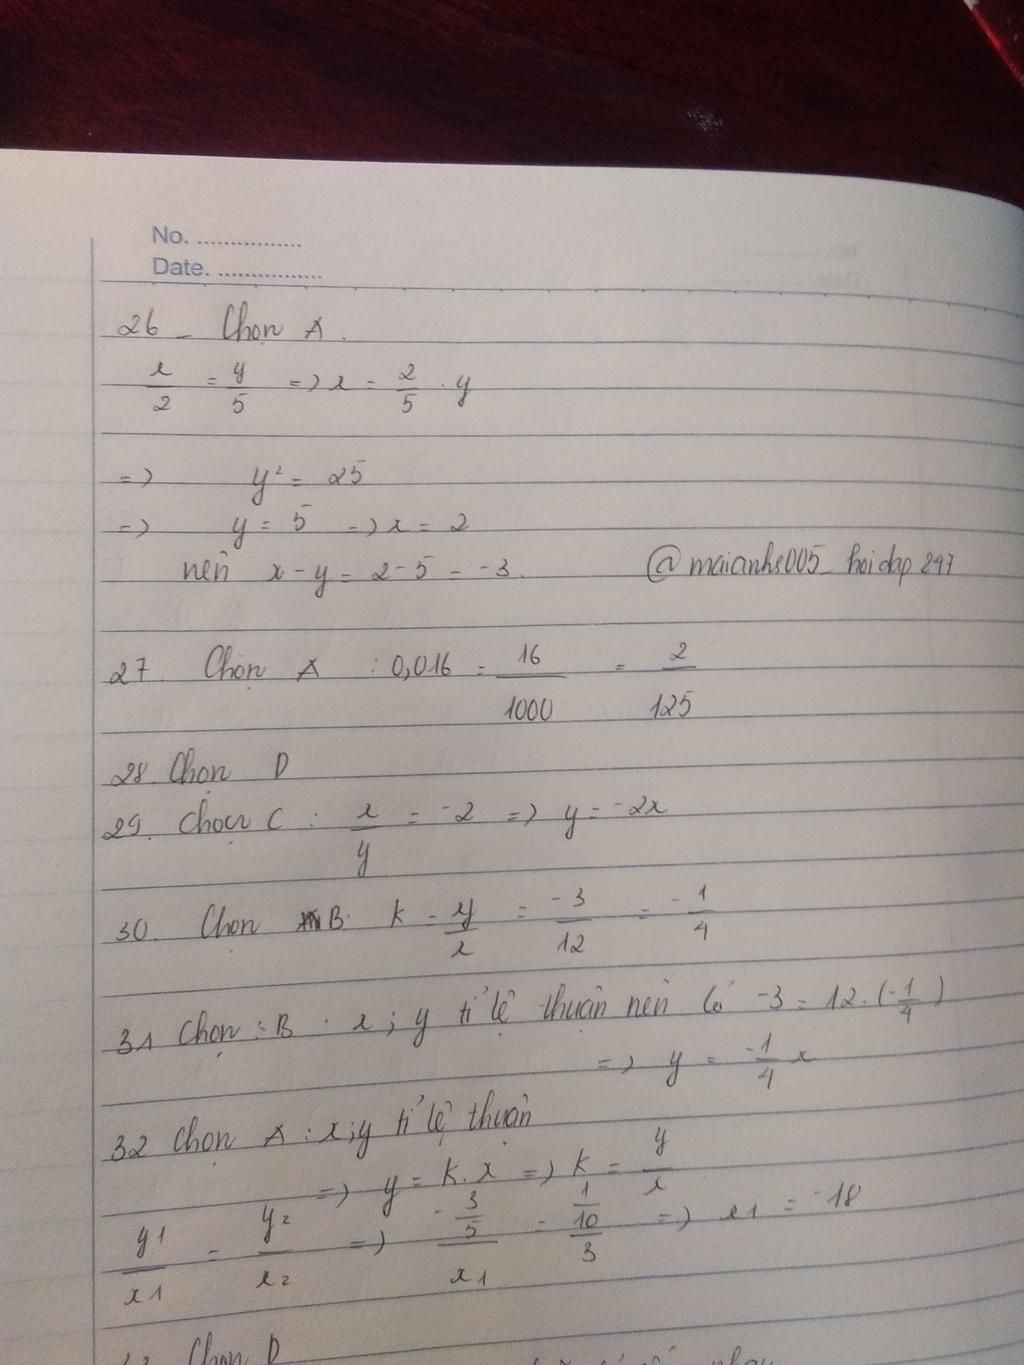 No. ................
Date. ................
26 _ Chọn A.
x/2 = y/5 => x = 2/5 . y
=> y² = 25
=> y = 5 => x = 2
nên x - y = 2 - 5 = -3.
@maianhs005_hoidap247
27. Chọn A : 0,016 = 16/1000 = 2/125
28. Chọn D
29. Chọn C : x/y = -2 => y = -2x
30. Chọn B. k = y/x = -3/12 = -1/4
31 Chọn : B . x ; y tỉ lệ thuận nên có -3 = 12.(-1/4)
=> y = -1/4 x
32 Chọn A : x;y tỉ lệ thuận
=> y = k.x => k = y/x
y1/x1 = y2/x2 => -3/5/x1 = 1/10/3 => x1 = -18
Chọn D
nhau